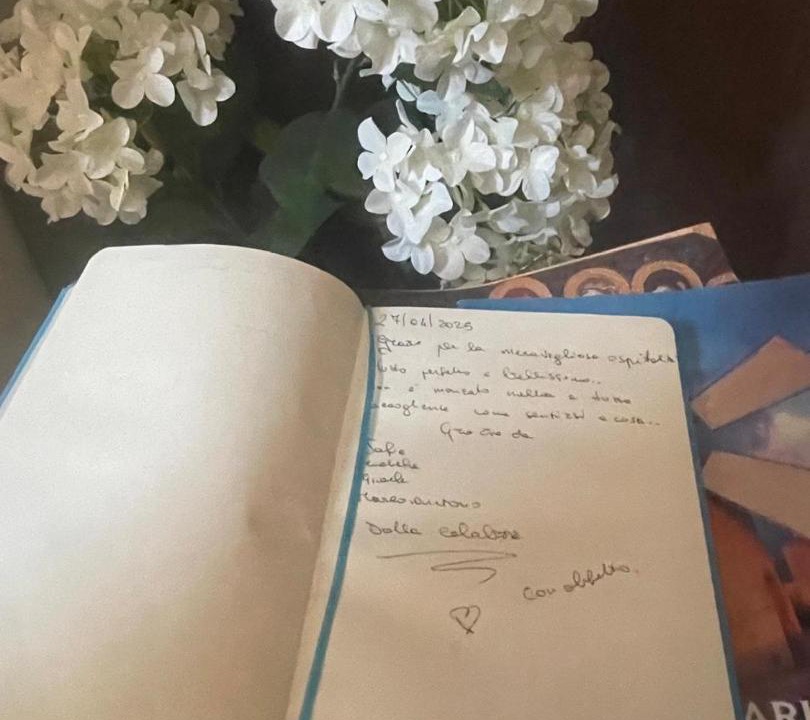 27/04/2025
Grazie per la meravigliosa ospitalità
tutto perfetto e bellissimo..
è mancato nulla e tutto
accogliente come sentirsi a casa...
Grazie da
Marcantonio
Dalla Calabria
Con affetto.